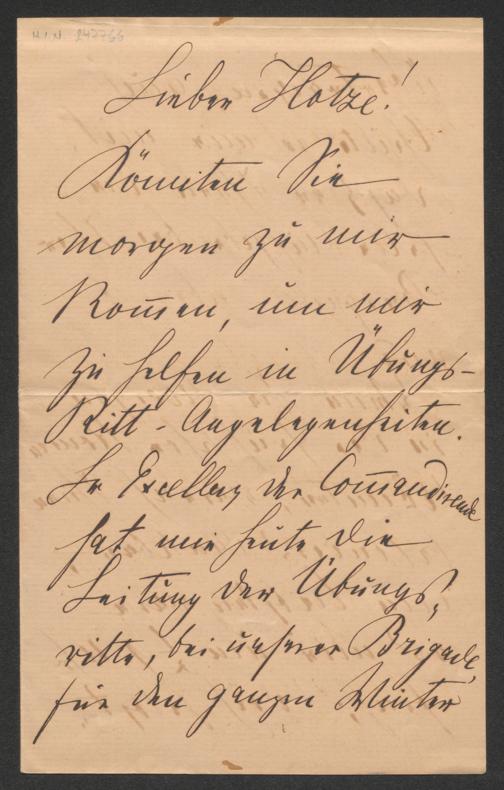 H.I.N. 247766
Lieber Hotze!
Könnten Sie
morgen zu mir
kom̅en, um mir
zu helfen in Übungs-
Ritt-Angelegenheiten.
Se Excellenz der Com̅andirende
hat mir heute die
Leitung der Übungs-
ritte, bei unserer Brigade,
für den ganzen Winter